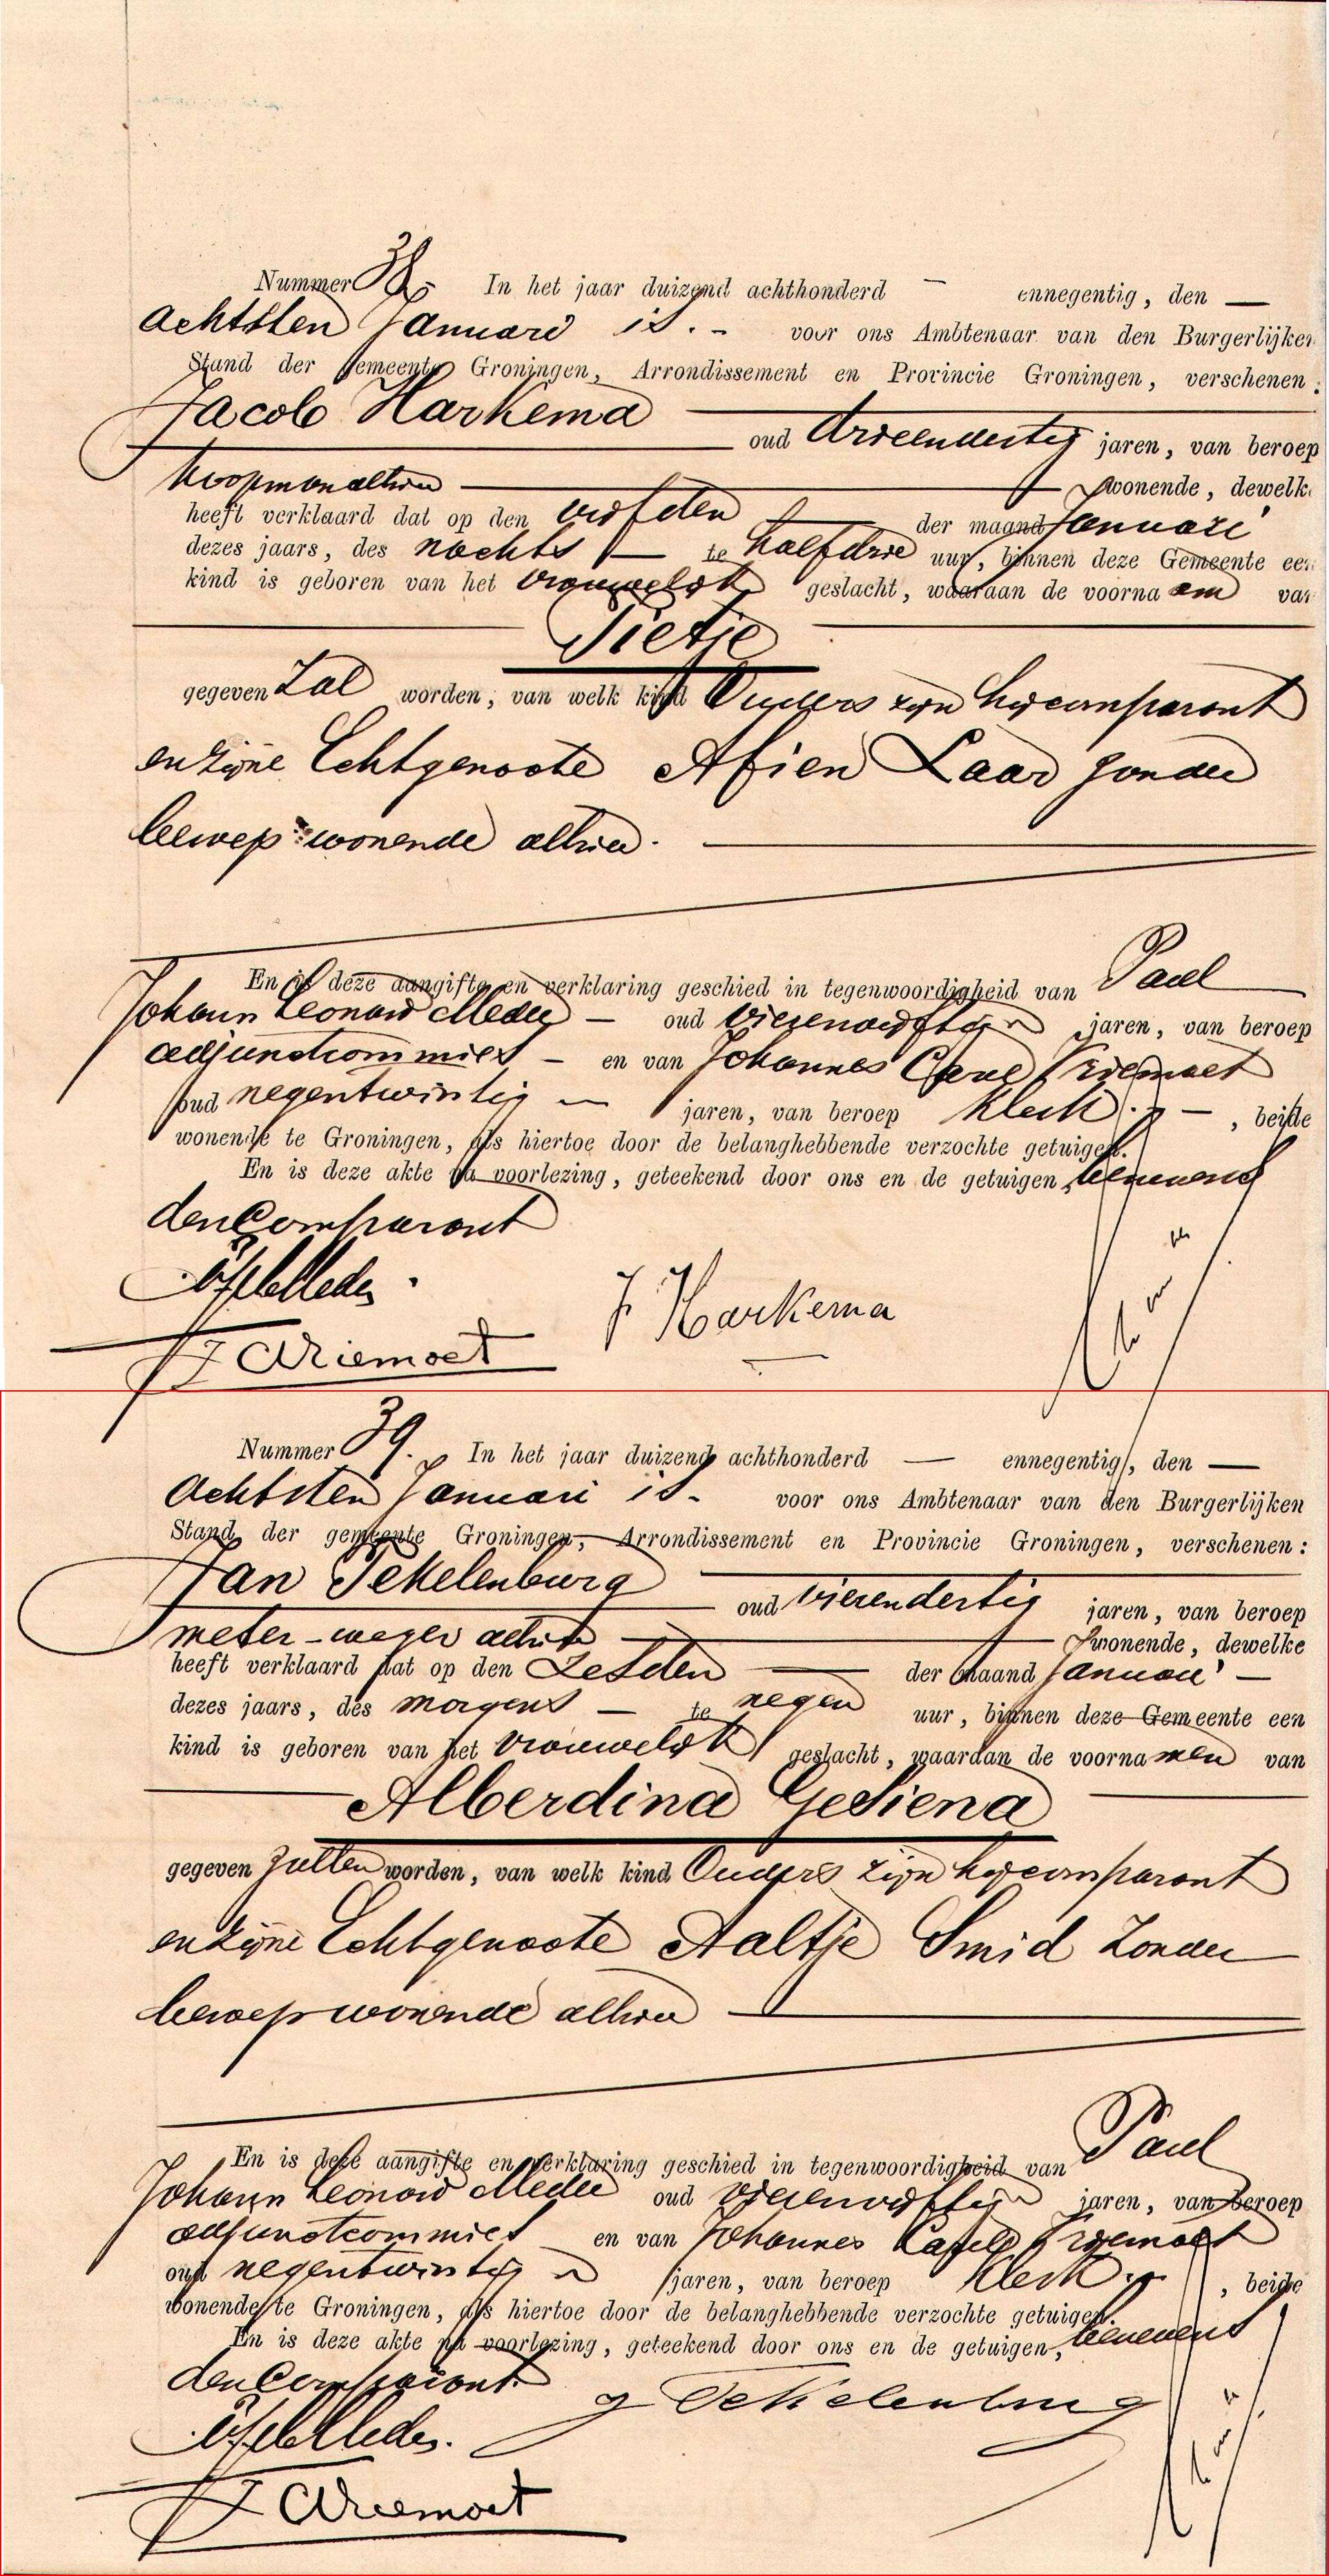 Nummer 38. In het jaar duizend achthonderd — ennegentig, den —
achtsten Januari is. - voor ons Ambtenaar van den Burgerlijken
Stand der gemeente Groningen, Arrondissement en Provincie Groningen, verschenen:
Jacob Harkema
oud drieendertig jaren, van beroep
Koopman alhier wonende, dewelke
heeft verklaard dat op den vijfden der maand Januari
dezes jaars, des nachts — te halfdrie uur, binnen deze Gemeente een
kind is geboren van het vrouwelijk geslacht, waaraan de voornaam van
Tietje
gegeven zal worden, van welk kind Ouders zijn hij comparant
en zijne Echtgenoote Afien Laar zonder
beroep wonende alhier.
En is deze aangifte en verklaring geschied in tegenwoordigheid van Paul
Johann Leonard — oud vierenvijftig jaren, van beroep
adjunctcommies - en van Johannes Vriemoet
oud negentwintig — jaren, van beroep Klerk. —, beide
wonende te Groningen, als hiertoe door de belanghebbende verzochte getuigen.
En is deze akte na voorlezing, geteekend door ons en de getuigen, benevens
den Comparant
J. Harkema
Vriemoet
Nummer 39. In het jaar duizend achthonderd — ennegentig, den —
Achtsten Januari is. - voor ons Ambtenaar van den Burgerlijken
Stand der gemeente Groningen, Arrondissement en Provincie Groningen, verschenen:
Jan Tekelenburg
oud vierendertig jaren, van beroep
meter-weger alhier wonende, dewelke
heeft verklaard dat op den Zesden — der maand Januari —
dezes jaars, des morgens — te negen uur, binnen deze Gemeente een
kind is geboren van het vrouwelijk geslacht, waaraan de voornamen van
Alberdina Gesiena
gegeven zullen worden, van welk kind Ouders zijn hij comparant
en zijne Echtgenoote Aaltje Smid zonder
beroep wonende alhier
En is deze aangifte en verklaring geschied in tegenwoordigheid van Paul
Johann Leonard oud vierenvijftig jaren, van beroep
adjunctcommies en van Johannes Vriemoet
oud negentwintig jaren, van beroep Klerk., beide
wonende te Groningen, als hiertoe door de belanghebbende verzochte getuigen.
En is deze akte na voorlezing, geteekend door ons en de getuigen, benevens
den Comparant
J Tekelenburg
Vriemoet